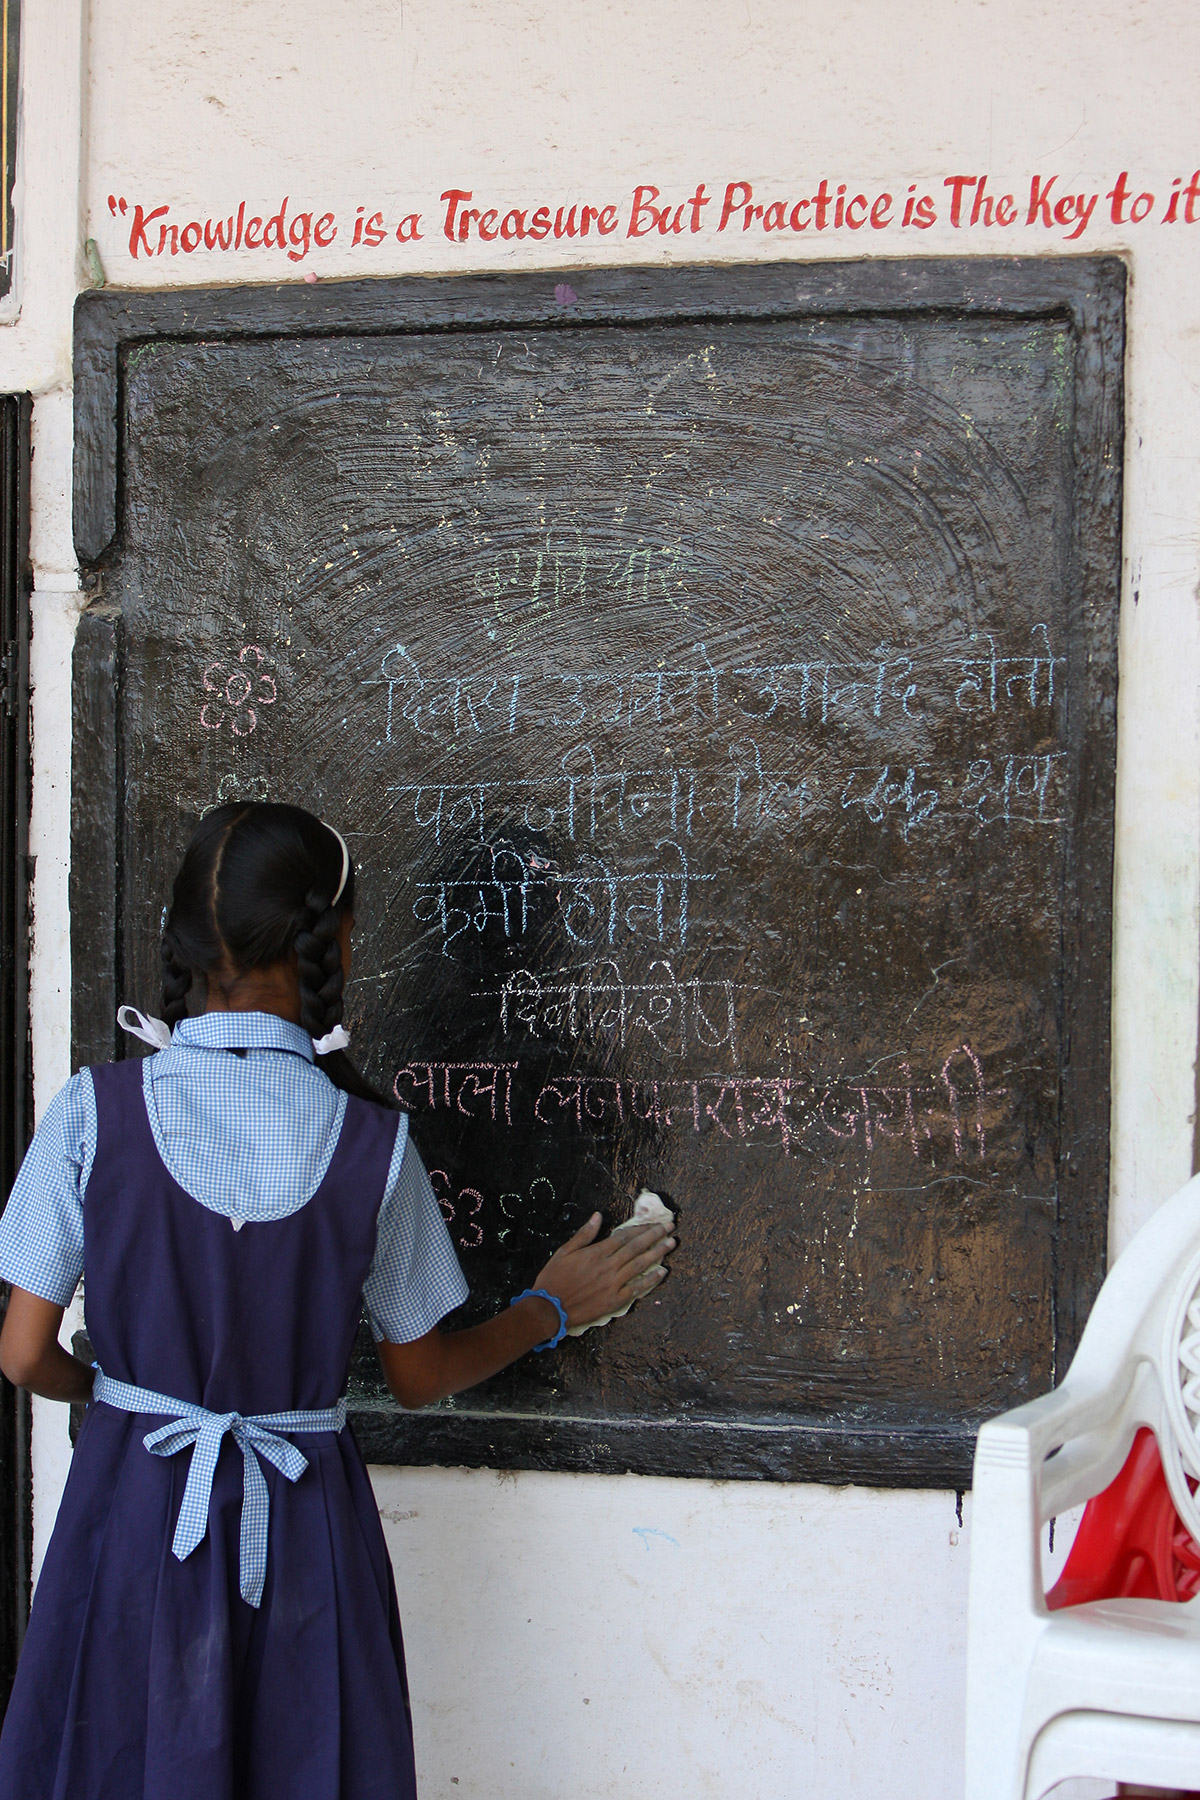 "Knowledge is a Treasure But Practice is The Key to it
दिवस उगवतो आनंद होतो
पण जीवनातील एक क्षण
कमी होतो
दिनविशेष
लाला लजपतराय जयंती